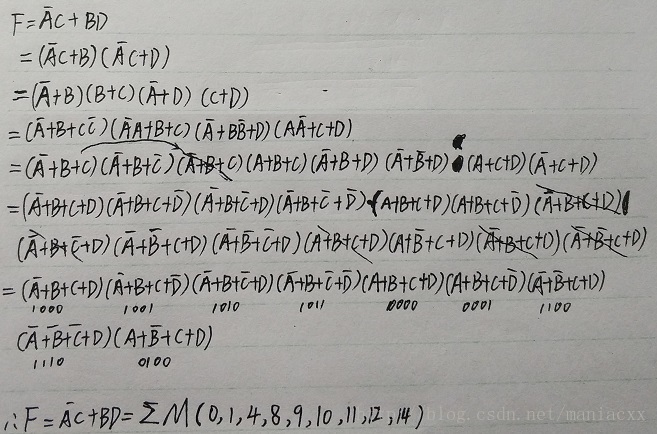 F=Āc+BD
=(Āc+B)(Āc+D)
=(Ā+B)(B+c)(Ā+D)(c+D)
=(Ā+B+cc̄)(AĀ+B+c)(Ā+BB̄+D)(AĀ+c+D)
=(Ā+B+c)(Ā+B+c̄)(Ā+B+c)(A+B+c)(Ā+B+D)(Ā+B̄+D)(A+c+D)(Ā+c+D)
=(Ā+B+c+D)(Ā+B+c+D̄)(Ā+B+c̄+D)(Ā+B+c̄+D̄)(A+B+c+D)(A+B+c+D̄)(Ā+B+c+D)
(Ā+B+c̄+D)(Ā+B̄+c+D)(Ā+B̄+c̄+D)(A+B+c+D)(A+B̄+c+D)(Ā+B+c+D)(Ā+B̄+c+D)
=(Ā+B+c+D)(Ā+B+c+D̄)(Ā+B+c̄+D)(Ā+B+c̄+D̄)(A+B+c+D)(A+B+c+D̄)(Ā+B̄+c+D)
1000 1001 1010 1011 0000 0001 1100
(Ā+B̄+c̄+D)(A+B̄+c+D)
1110 0100
∴F=Āc+BD=∑M(0,1,4,8,9,10,11,12,14)
blog.csdn.net/maniacxx